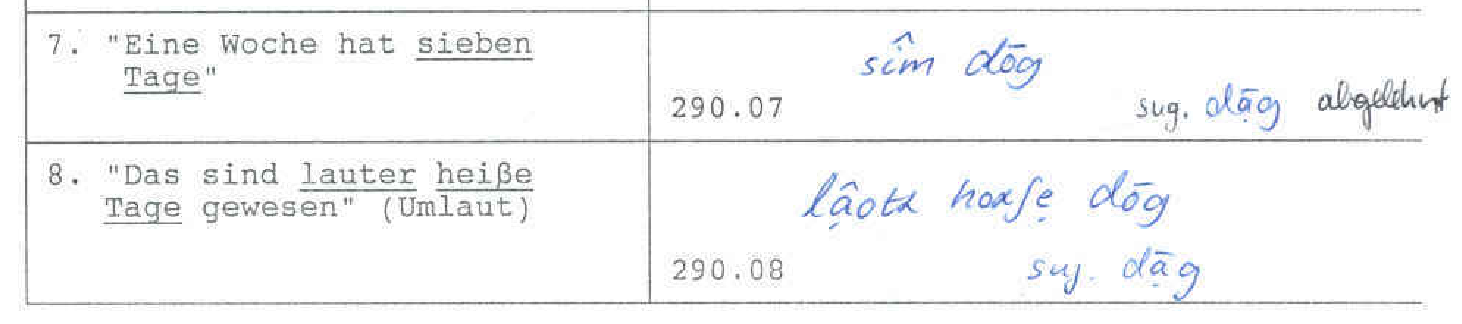 7. "Eine Woche hat sieben
Tage"
sîm dōg
290.07
sug. dạ̄g abgelehnt
8. "Das sind lauter heiße
Tage gewesen" (Umlaut)
lậotα hoαſẹ dōg
290.08
sug. dạ̄g